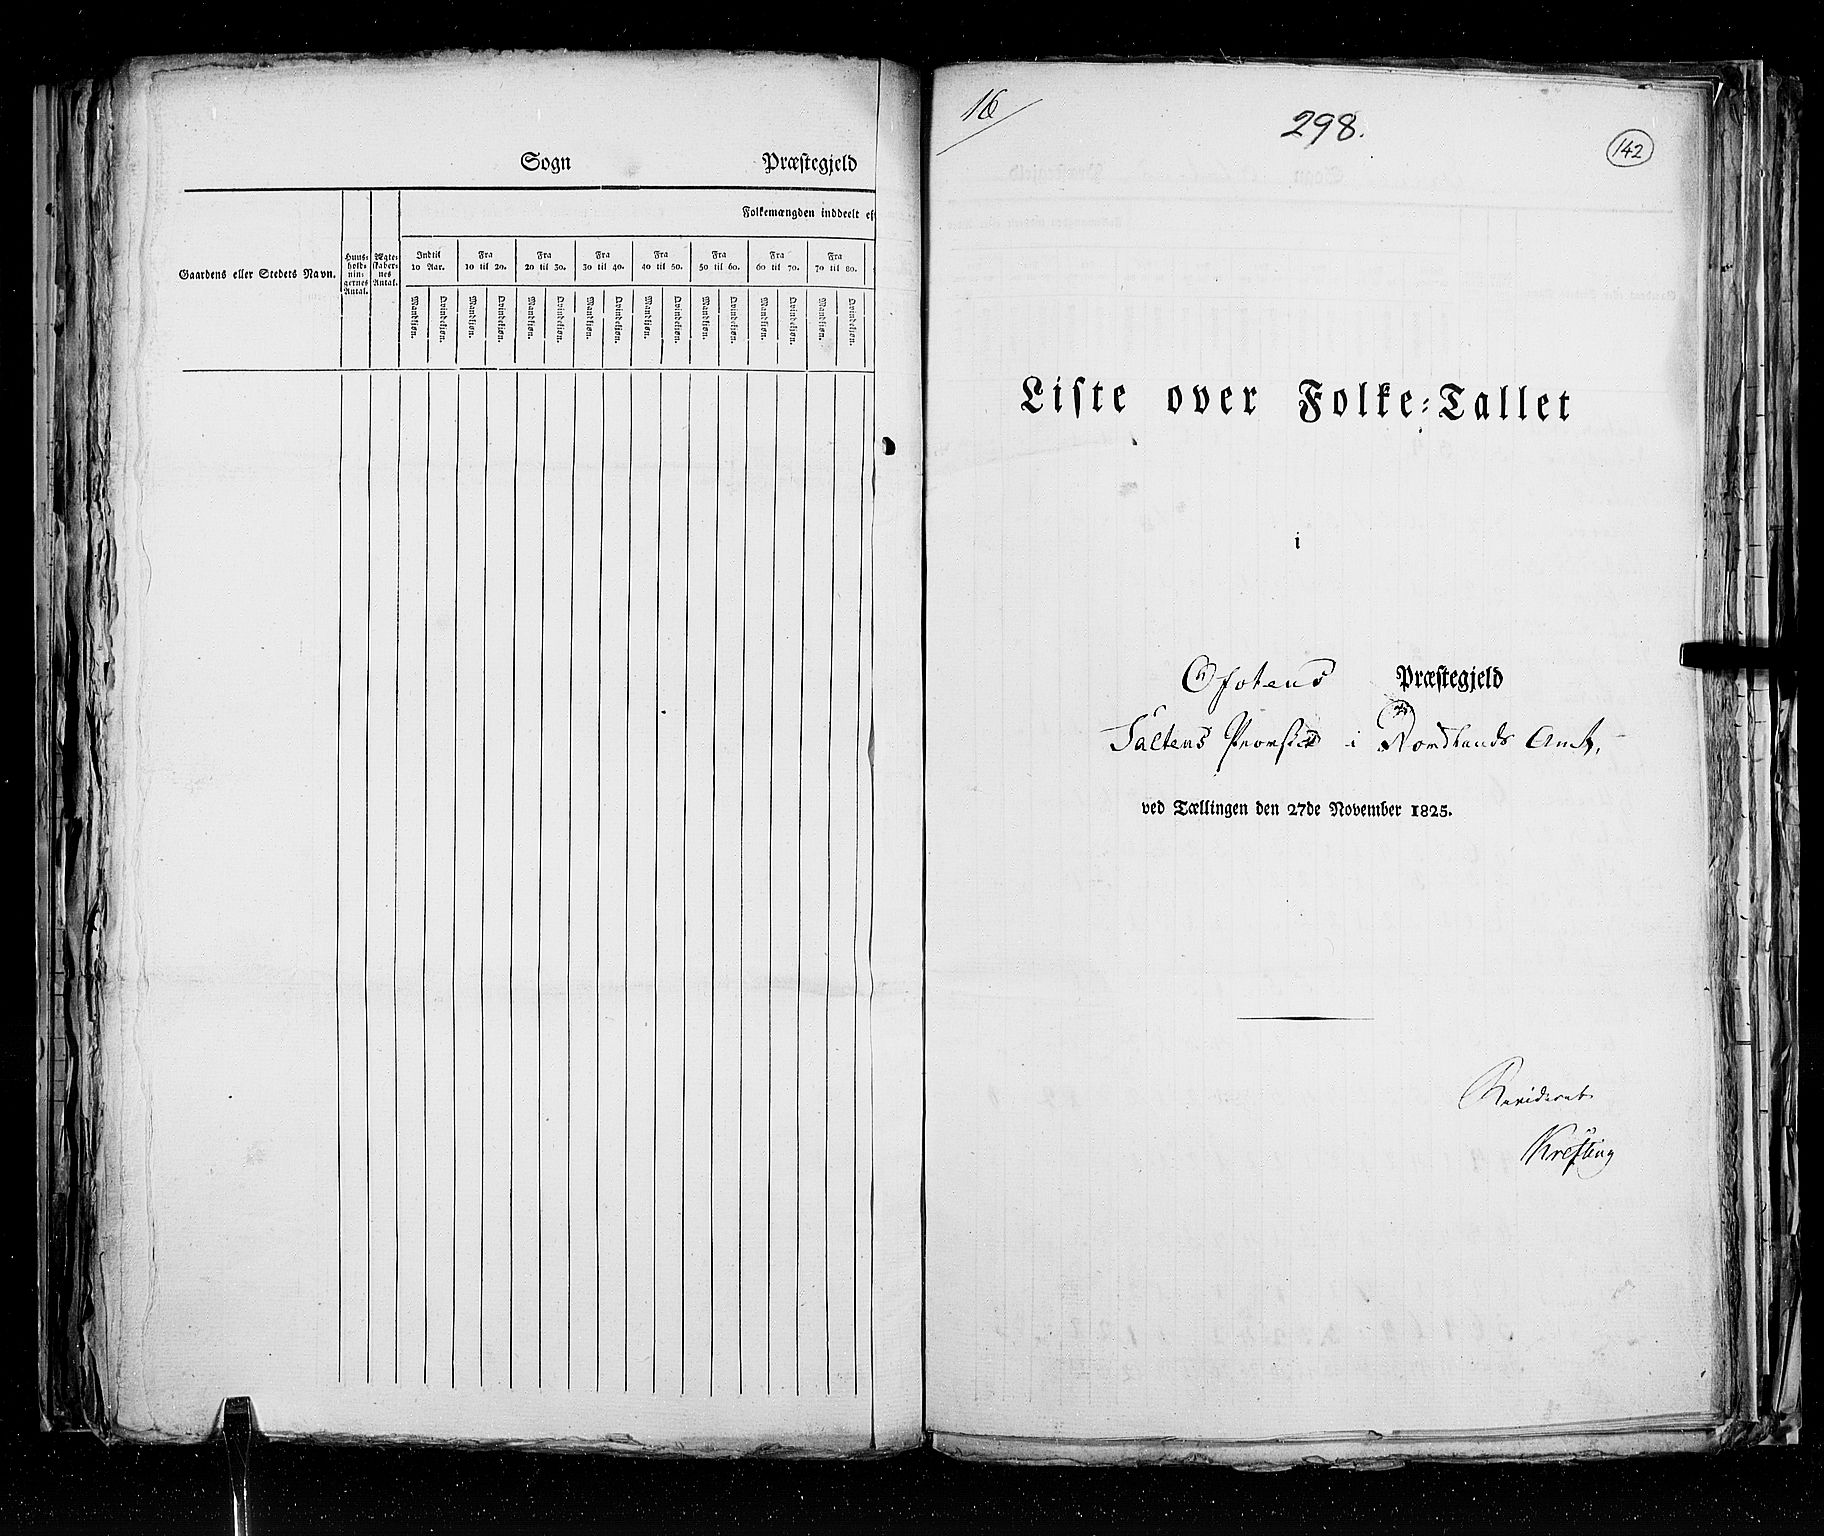 Sogn Præstegjeld
Folkemængden inddeelt eft
Gaardens eller Stedets Navn.
Huus-
hold-
nin-
gernes
Antal.
Ægte-
skaber-
nes
Antal.
Indtil
10 Aar.
Fra
10 til 20.
Fra
20 til 30.
Fra
30 til 40.
Fra
40 til 50.
Fra
50 til 60.
Fra
60 til 70.
Fra
70 til 80.
Mandkiøn. Qvindekiøn. Mandkiøn. Qvindekiøn. Mandkiøn. Qvindekiøn. Mandkiøn. Qvindekiøn. Mandkiøn. Qvindekiøn. Mandkiøn. Qvindekiøn. Mandkiøn. Qvindekiøn. Mandkiøn. Qvindekiøn.
16
298.
142
Liste over Folke-Tallet
i
Ofotens Præstegjeld
Saltens Provstie i Nordlands Amt,
ved Tællingen den 27de November 1825.
Revideret
Kresting